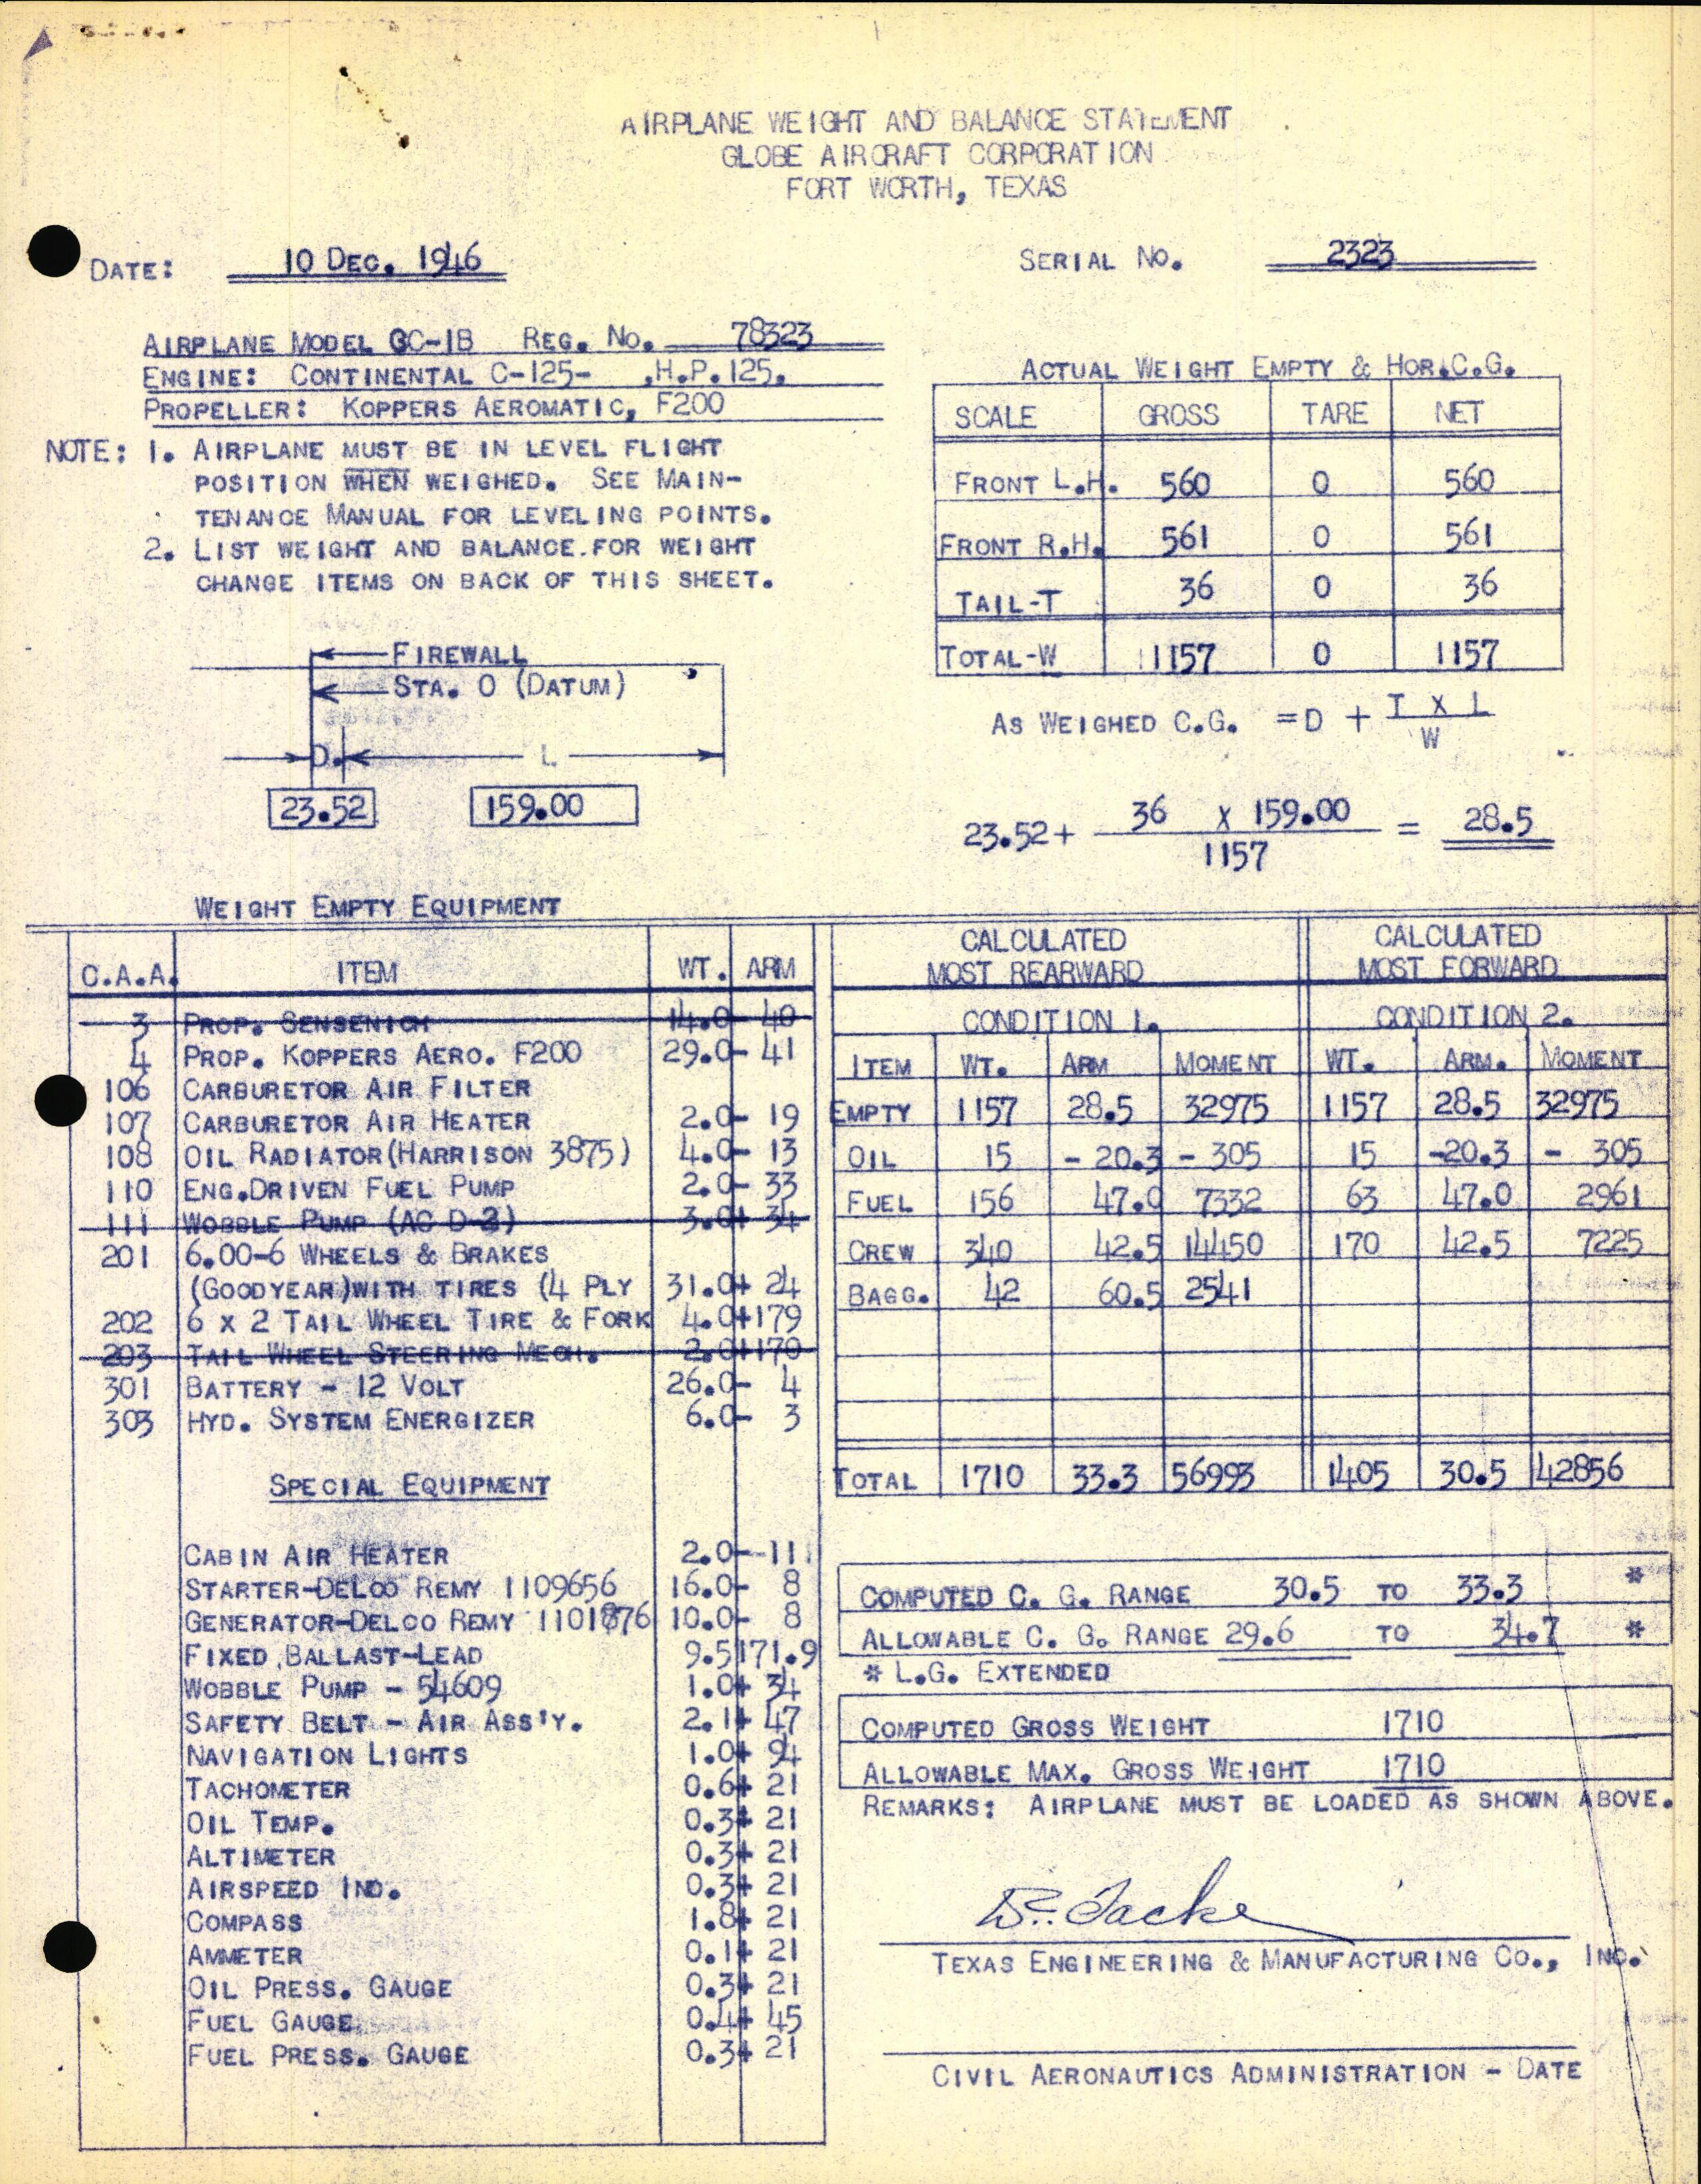 AIRPLANE WEIGHT AND BALANCE STATEMENT
GLOBE AIRCRAFT CORPORATION
FORT WORTH, TEXAS
DATE: 10 DEC. 1946
SERIAL NO. 2323
AIRPLANE MODEL GC-1B REG. NO. 78323
ENGINE: CONTINENTAL C-125- ,H.P.125.
PROPELLER: KOPPERS AEROMATIC, F200
NOTE: 1. AIRPLANE MUST BE IN LEVEL FLIGHT
POSITION WHEN WEIGHED. SEE MAIN-
TENANCE MANUAL FOR LEVELING POINTS.
2. LIST WEIGHT AND BALANCE.FOR WEIGHT
CHANGE ITEMS ON BACK OF THIS SHEET.
ACTUAL WEIGHT EMPTY & HOR.C.G.
SCALE GROSS TARE NET
FRONT L.H. 560 0 560
FRONT R.H. 561 0 561
TAIL-T 36 0 36
TOTAL-W 1157 0 1157
FIREWALL
STA. 0 (DATUM)
D. L
23.52 159.00
AS WEIGHED C.G. =D + T X L
W
23.52+ 36 X 159.00 = 28.5
1157
WEIGHT EMPTY EQUIPMENT
C.A.A. ITEM WT. ARM
3 PROP. SENSENICH 14.0- 40
4 PROP. KOPPERS AERO. F200 29.0- 41
106 CARBURETOR AIR FILTER
107 CARBURETOR AIR HEATER 2.0- 19
108 OIL RADIATOR(HARRISON 3875) 4.0- 13
110 ENG.DRIVEN FUEL PUMP 2.0- 33
111 WOBBLE PUMP (AC D-3) 3.0+ 34
201 6.00-6 WHEELS & BRAKES
(GOODYEAR)WITH TIRES (4 PLY 31.0+ 24
202 6 X 2 TAIL WHEEL TIRE & FORK 4.0+179
203 TAIL WHEEL STEERING MECH. 2.0+170
301 BATTERY - 12 VOLT 26.0- 4
303 HYD. SYSTEM ENERGIZER 6.0- 3
SPECIAL EQUIPMENT
CABIN AIR HEATER 2.0- -11
STARTER-DELCO REMY 1109656 16.0- 8
GENERATOR-DELCO REMY 1101876 10.0- 8
FIXED BALLAST-LEAD 9.5 171.9
WOBBLE PUMP - 54609 1.0+ 34
SAFETY BELT - AIR ASS'Y. 2.1+ 47
NAVIGATION LIGHTS 1.0+ 94
TACHOMETER 0.6+ 21
OIL TEMP. 0.3+ 21
ALTIMETER 0.3+ 21
AIRSPEED IND. 0.3+ 21
COMPASS 1.8+ 21
AMMETER 0.1+ 21
OIL PRESS. GAUGE 0.3+ 21
FUEL GAUGE 0.4+ 45
FUEL PRESS. GAUGE 0.3+ 21
CALCULATED CALCULATED
MOST REARWARD MOST FORWARD
CONDITION 1. CONDITION 2.
ITEM WT. ARM MOMENT WT. ARM. MOMENT
EMPTY 1157 28.5 32975 1157 28.5 32975
OIL 15 - 20.3 - 305 15 -20.3 - 305
FUEL 156 47.0 7332 63 47.0 2961
CREW 340 42.5 14450 170 42.5 7225
BAGG. 42 60.5 2541
TOTAL 1710 33.3 56993 1405 30.5 42856
COMPUTED C. G. RANGE 30.5 TO 33.3 *
ALLOWABLE C. G. RANGE 29.6 TO 34.7 *
* L.G. EXTENDED
COMPUTED GROSS WEIGHT 1710
ALLOWABLE MAX. GROSS WEIGHT 1710
REMARKS: AIRPLANE MUST BE LOADED AS SHOWN ABOVE.
TEXAS ENGINEERING & MANUFACTURING CO., INC.
CIVIL AERONAUTICS ADMINISTRATION - DATE